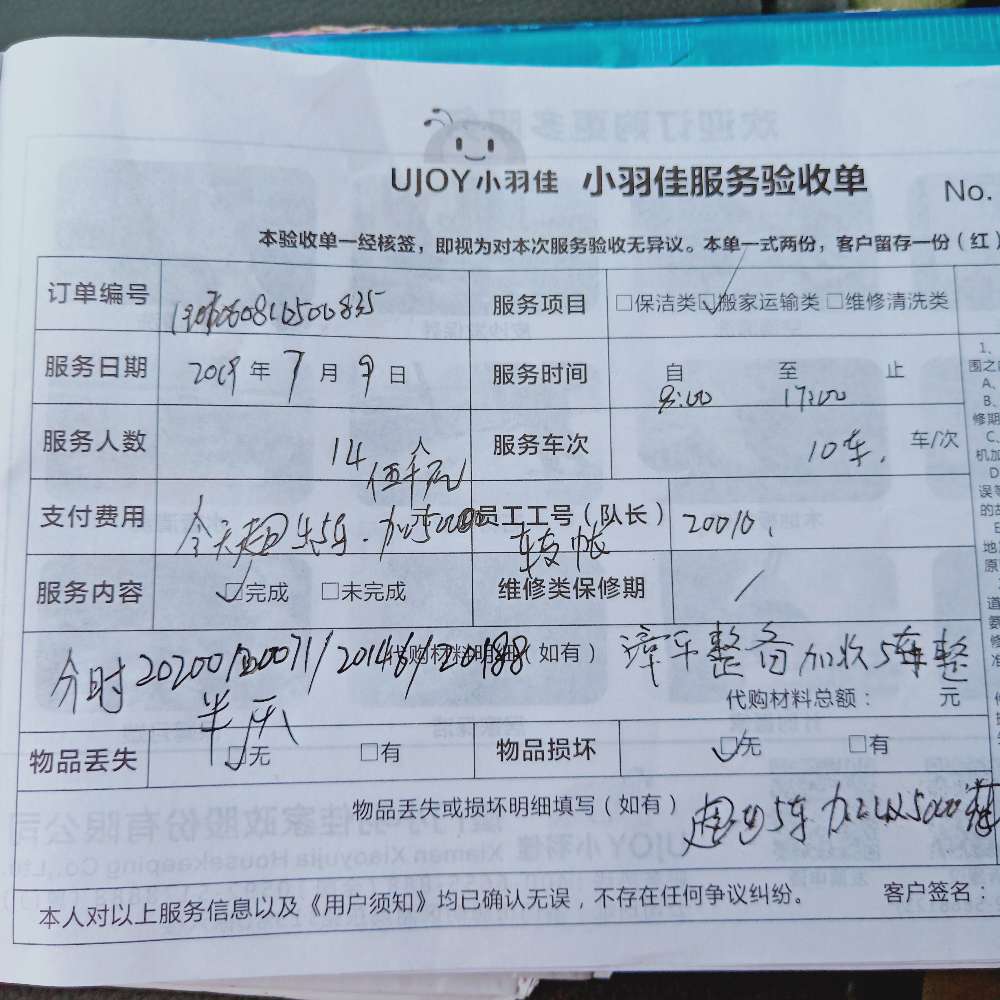 UJOY 小羽佳 小羽佳服务验收单 No.
本验收单一经核签，即视为对本次服务验收无异议。本单一式两份，客户留存一份（红）
订单编号
服务项目 □保洁类 □搬家运输类 □维修清洗类
服务日期 2019 年 7 月 9 日
服务时间 自 8:00 至 17:00 止
服务人数 14人
服务车次 10车. 车/次
伍千元
支付费用 元
今天超 5车. 加5000
转帐
员工工号（队长） 20010.
服务内容 □完成 □未完成
维修类保修期 /
代购材料明细（如有）
分时 20200/20071/20146/20188
半天
加收5车整
代购材料总额： 元
物品丢失 □无 □有
物品损坏 □无 □有
物品丢失或损坏明细填写（如有）
超5车 加收5000
本人对以上服务信息以及《用户须知》均已确认无误，不存在任何争议纠纷。 客户签名：